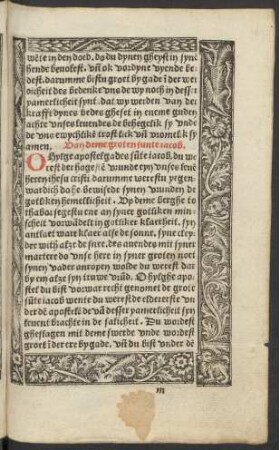 wete in den doed. do du dynen gheyst in syne
hende beualest. vñ ok vordyne vyende be
dest. darumme bistu groet by gade
des bedenke vns de wy noch in desser
yamerlicheit synt. dat wy werden van der
krafft dynes bedes gheset in enemt guden
achte vnses leuendes de behegelik sy vnde
de vns ewychlikē trostlick vñ
amen.
Van deme groten sunte iacob.
O Hylge apostel gades sūte iacob. du we
rest der hogeste vrunde eyn vnses
heren ihesu cristi darumme werestu yegen
wardich do he bewisede synen vrunden de
gotliken hemelicheit. Up deme berghe to
thabor segestu ene an syner gotliken min
scheit vorwādelt in gotliker klaerheit. syn
antlaet ware klaer alse de sonne. syne cley
der with alze de snee. des auendes mit syner
martere do vnse here in syner groten noet
synen vader anropen wolde du werest dar
by em alze syn truwe vrūd. O hylghe apo
stel du bist vorwar recht genomet de grote
sūte iacob wente du werest de eldereste vn
der dē apostelē de vā desser yamerlicheit syn
leuent brachte in de salicheit. Du wordest
gheslagen mit deme swerde vnde wordest
groet in der ere by gade. vñ du bist vnder dē
m